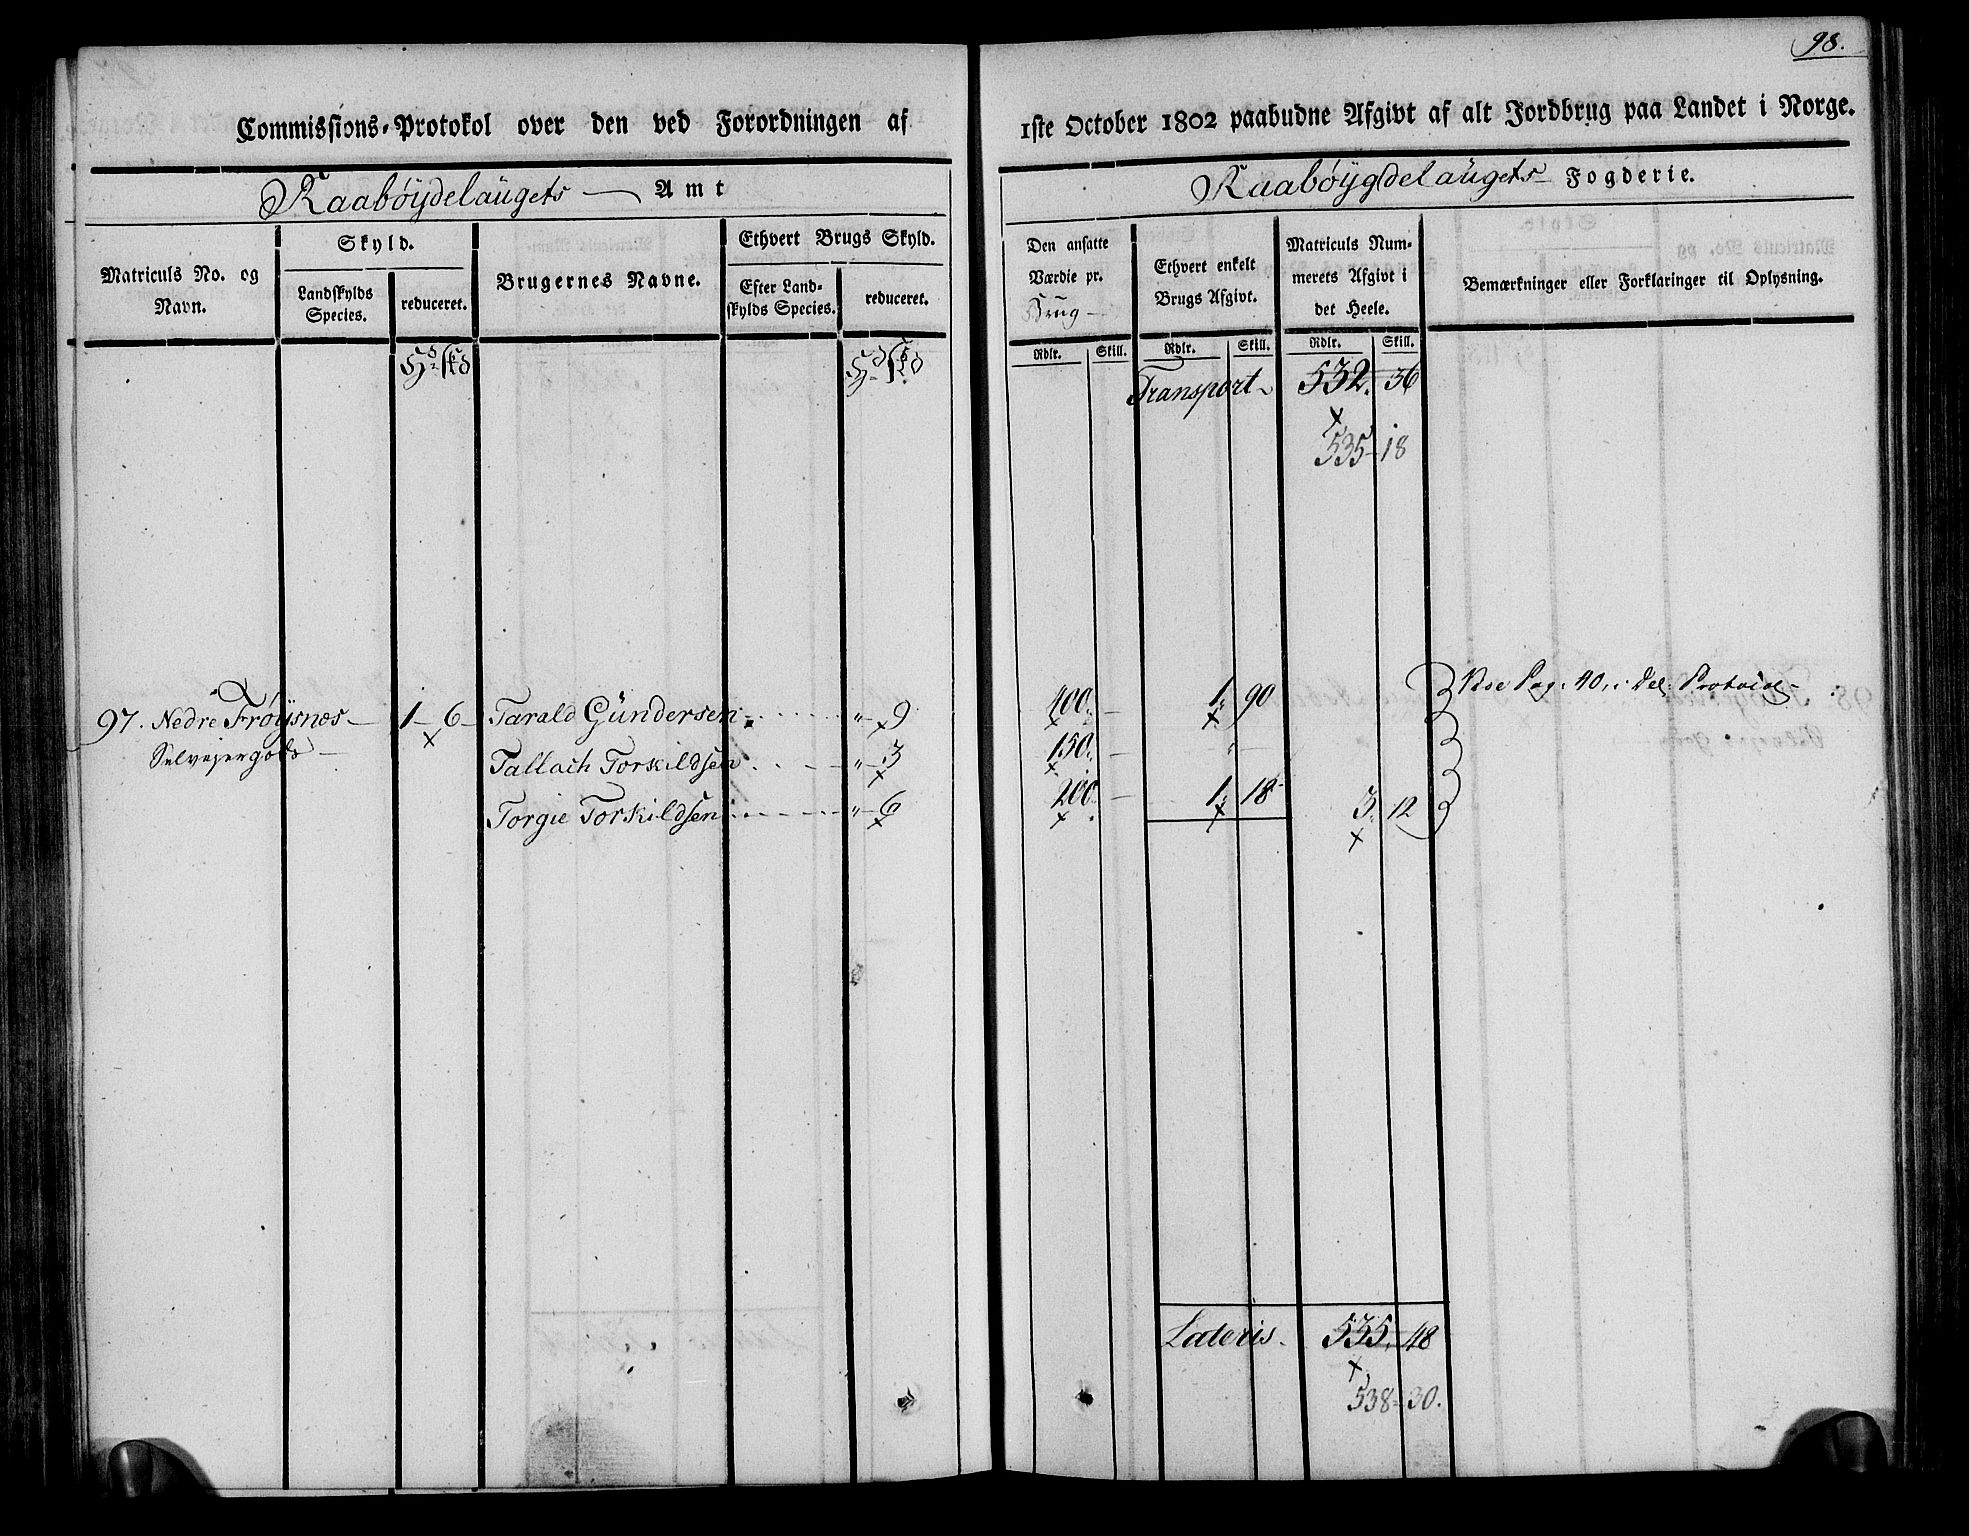 98.
Commissions-Protokol over den ved Forordningen af 1ste October 1802 paabudne Afgivt af alt Jordbrug paa Landet i Norge.
Raabøydelaugets Amt
Raabøygdelaugets Fogderie.
Matriculs No. og Navn.
Skyld.
Landskylds Species.
reduceret.
Brugernes Navne.
Ethvert Brugs Skyld.
Efter Landskylds Species.
reduceret.
Den ansatte Værdie pr. Brug
Ethvert enkelt Brugs Afgivt.
Matriculs Nummerets Afgivt i det Heele.
Bemærkninger eller Forklaringer til Oplysning.
Rdlr. Skill. Rdlr. Skill. Rdlr. Skill.
Transport 532. 36
535-18
97. Nedre Frøysnes 1-6 Tarald Gündersen " 9 400. 1. 90 Vise Pag. 40. i Del. Protocol
Selvejergods Tallach Torkildsen " 3 150. "
Torgie Torkildsen " 6 200. 1. 18 3. 12
Lateris 535. 48
538-30.